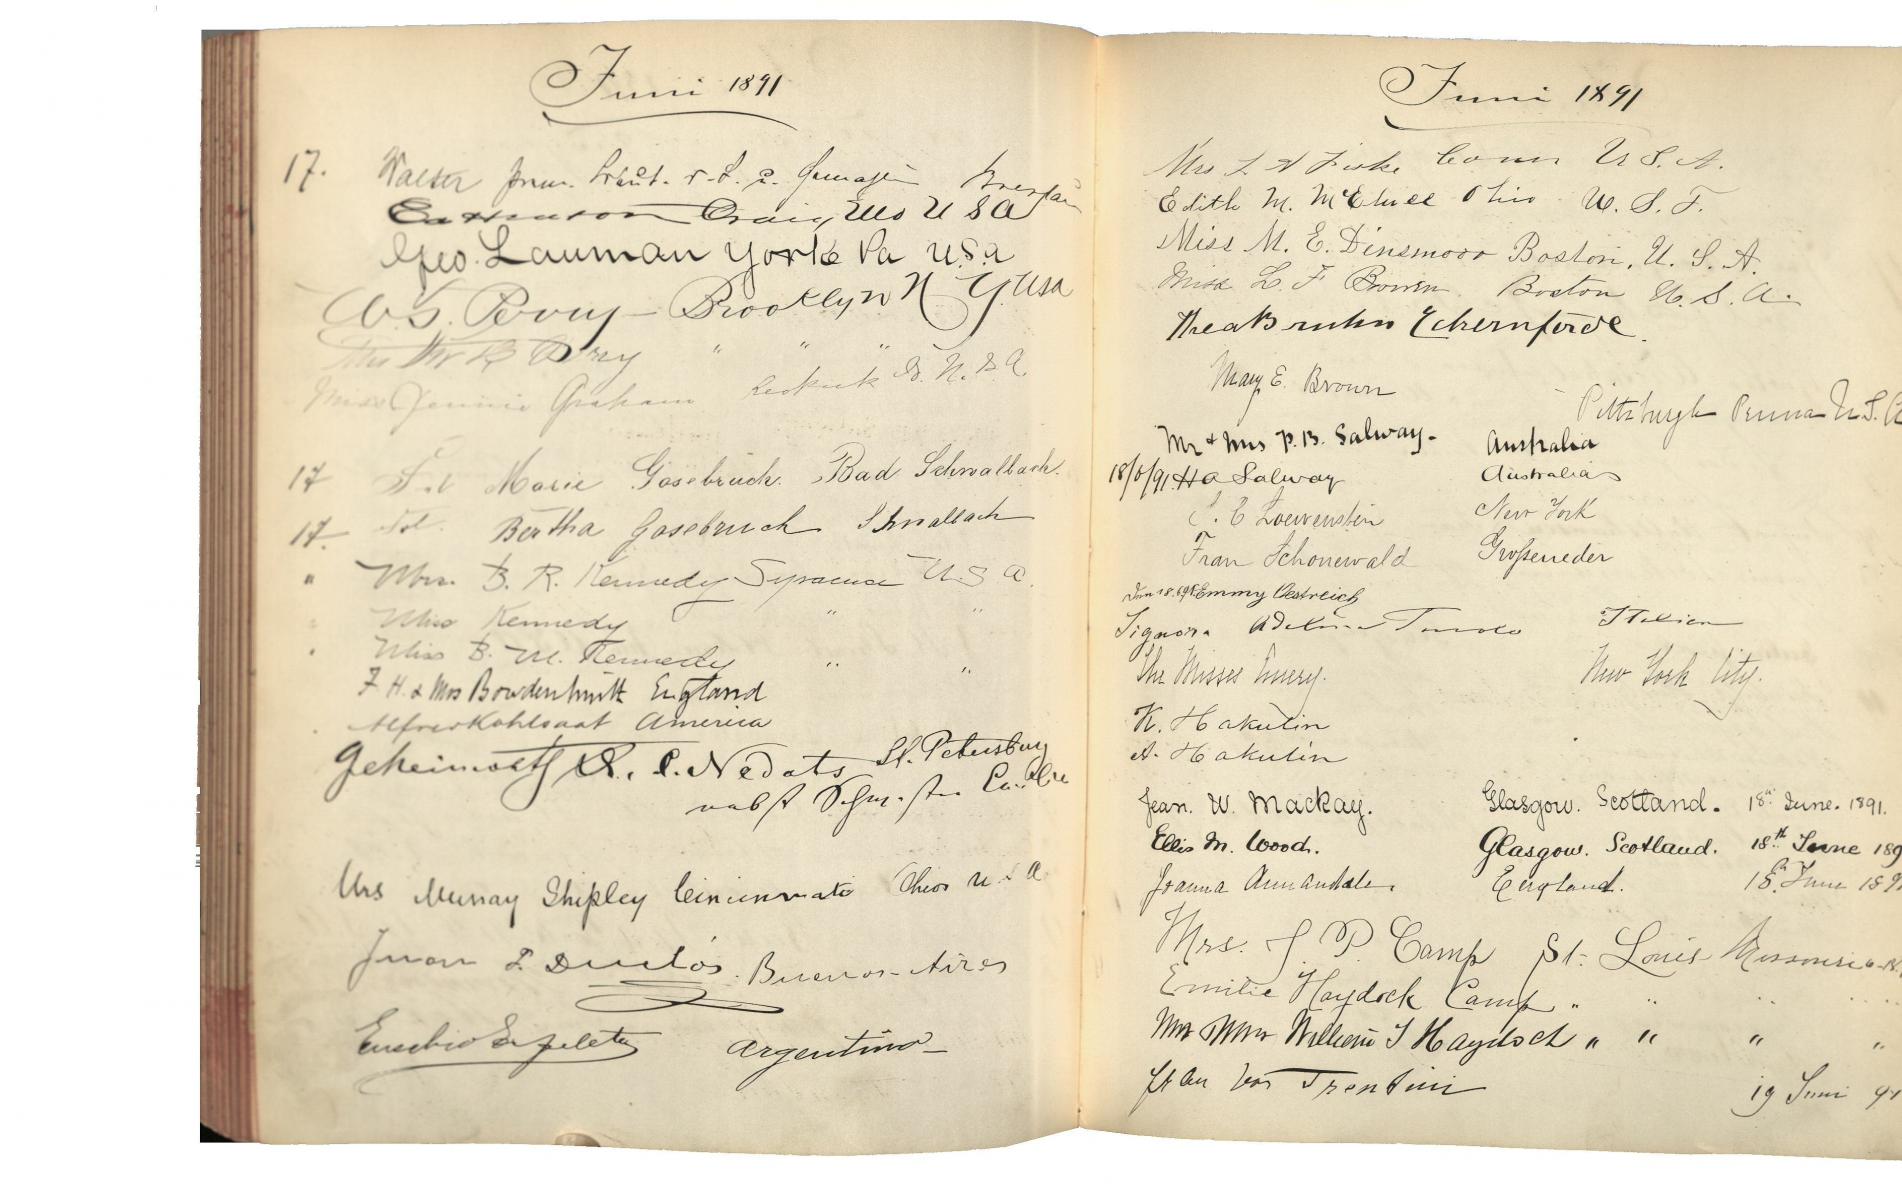 Juni 1891
17. Walter Breslau
Craig, U S A
Geo. Lauman York Pa U.S.a
Perry Brooklyn N Y. Usa
Mrs " " "
Miss Jennie Graham
17 Frl Marie Gosebruch. Bad Schwalbach.
17. Frl. Bertha Gosebruch Schwalbach
" Mrs. B. R. Kennedy Syracuse U.S a.
" Miss Kennedy " "
" Miss B. M. Kennedy " "
F H. & Mrs Bowden Smith England
Alfred Kohlsaat America
Geheimrath St. Petersburg
nebst
Mrs Murray Shipley Cincinnati Ohio U S A
Juan Buenos-Aires
Eusebio Argentino
Juni 1891
Mrs Fiske Conn U.S.A.
Edith M. McElwee Ohio. U. S. A.
Miss M. E. Dinsmoor Boston, U. S. A.
Miss L. F Brown Boston U. S. A.
Thea Bruhn Eckernförde.
Mary E. Brown
Pittsburgh Penna U.S.A
Mr & Mrs P. B. Salway. Australia
18/6/91 H a Salway Australia
E Loewenstein New York
Frau Schonewald Großeneder
Jun 18. 91 Emmy Oestreich
Signora Adelina Italien
The Misses Emery. New York City.
K. Hakulin
A. Hakulin
Jean. W. Mackay. Glasgow. Scotland. 18th June. 1891.
Ellis M. Wood. Glasgow. Scotland. 18th June 189
Joanna Annandale. England. 18th June 189
Mrs. J. P. Camp St. Louis Missouri
Emilie Haydock Camp " " " "
Mr Mrs William T Haydock " " " "
Frau von Trentini 19 Juni 91